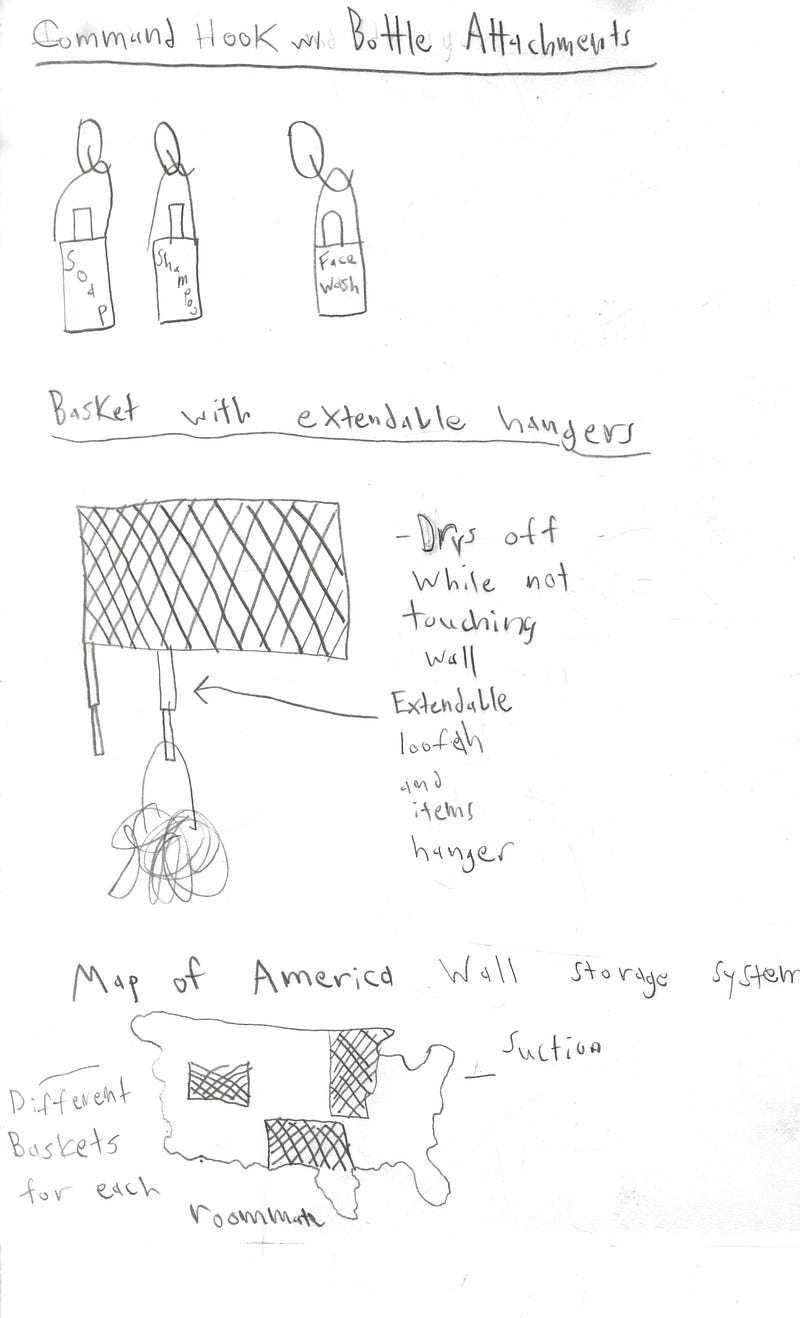 Command Hook with Bottle Attachments
Soap
Shampoo
Face
Wash
Basket with extendable hangers
- Drys off
while not
touching
wall
Extendable
loofah
and
items
hanger
Map of America Wall storage system
Suction
Different
Baskets
for each
roommate